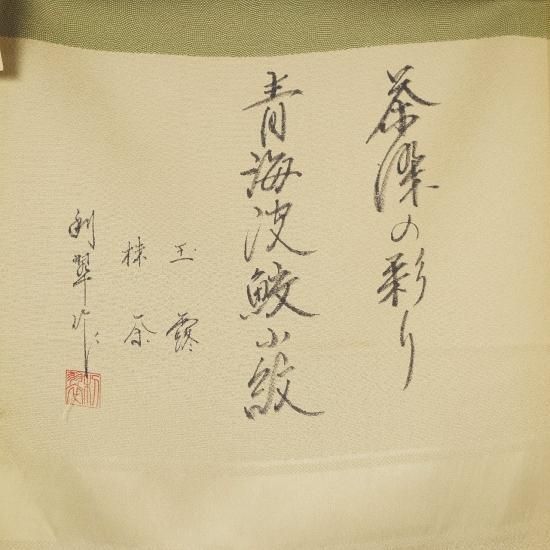 茶染の彩り
青海波鮫小紋
玉露
抹茶
利翠作